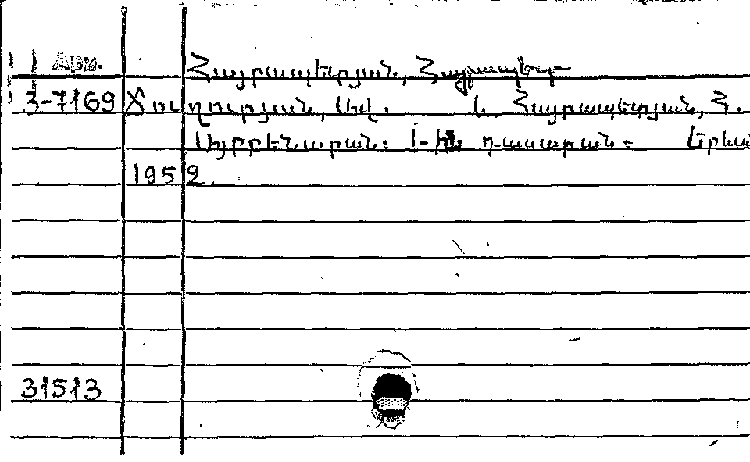 Арм. Հայրապետյան, Հայրապետ
3-7169 Ճուղուրյան, Ավ. և Հայրապետյան, Հ.
Այբբենարան: 1-ին դասարան = Երևա
1952.
31513